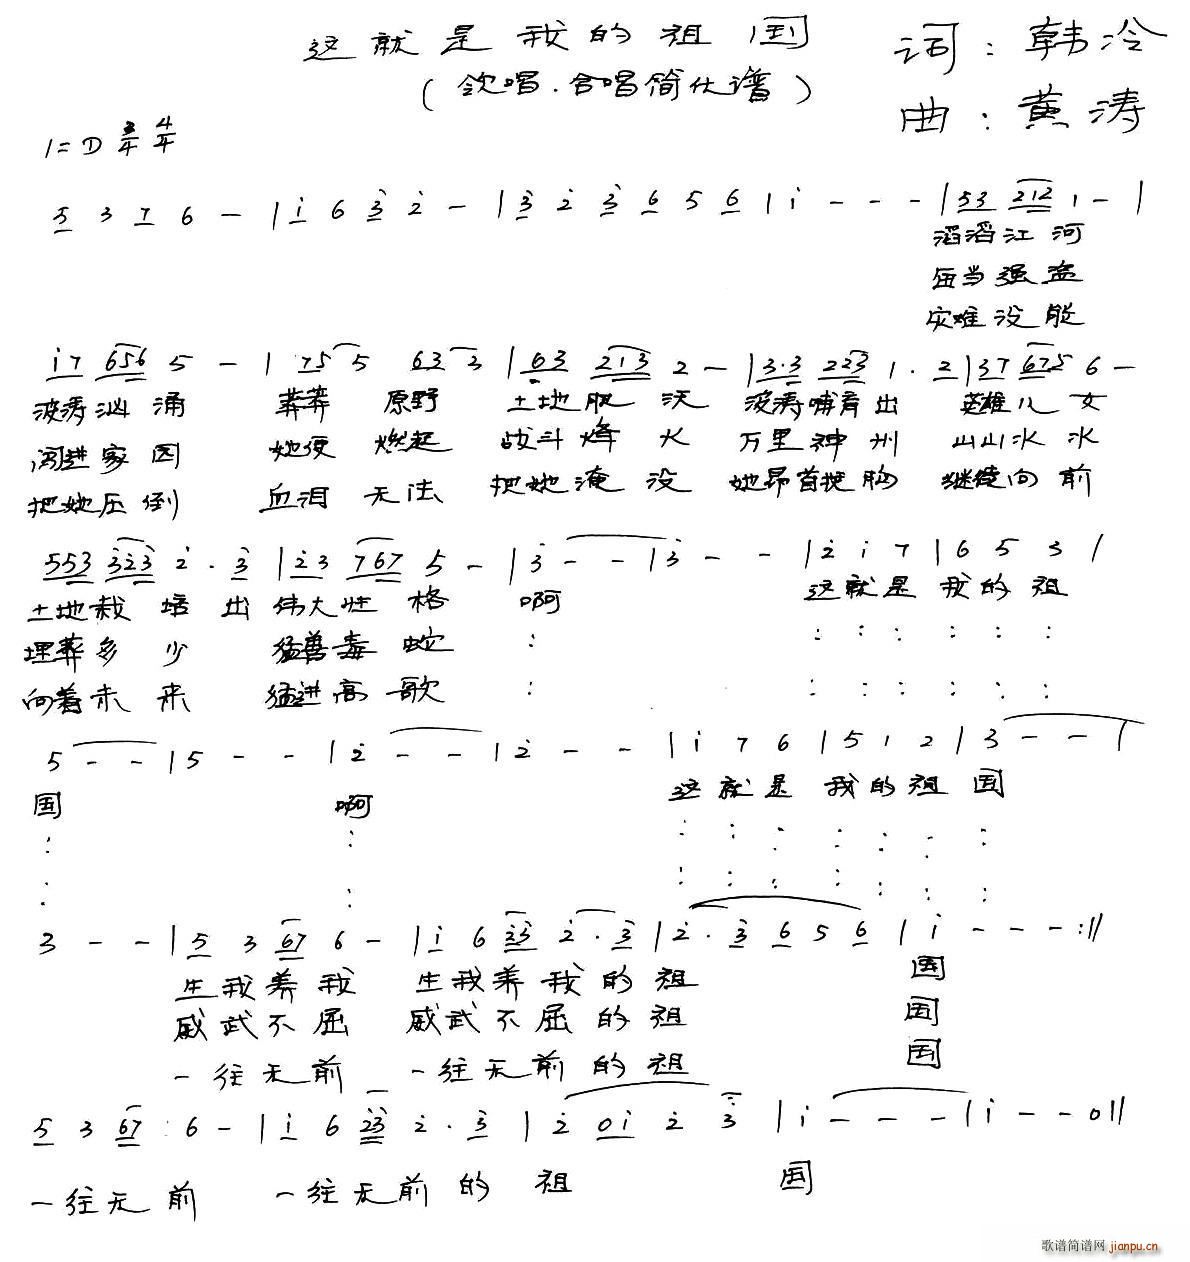 这就是我的祖国
词：韩冷
(领唱.合唱简化谱)
曲：黄涛
1=D 3/4 4/4
5 3 7 6 - | i 6 3 2 - | 3 2 3 6 5 6 | i - - - | 53 212 1 - |
滔滔江河
每当强盗
灾难没能
i7 656 5 - | 75 5 63 3 | 63 213 2 - | 3·3 223 1 . 2 | 37 675 6 -
波涛汹涌 莽莽原野 土地肥沃 波涛哺育出 英雄儿女
闯进家园 她便燃起 战斗烽火 万里神州 山山水水
把她压倒 血泪无法 把她淹没 她昂首挺胸 继续向前
553 323 2 . 3 | 23 767 5 - | 3 - - | 3 - - | 2 i 7 | 6 5 3 |
土地栽培出伟大性格 啊 这就是我的祖
埋葬多少 猛兽毒蛇 : : : : : : :
向着未来 猛进高歌 : : : : : : :
5 - - | 5 - - | 2 - - | 2 - - | i 7 6 | 5 1 2 | 3 - - |
国 啊 这就是我的祖国
3 - - | 5 3 67 6 - | i 6 23 2 . 3 | 2 . 3 6 5 6 | i - - - :||
生我养我 生我养我的祖 国
威武不屈 威武不屈的祖 国
一往无前 一往无前的祖 国
5 3 67 6 - | i 6 23 2 . 3 | 2 0i 2 3 | i - - - | i - - 0 ||
一往无前 一往无前的祖 国
歌谱简谱网 jianpu.cn